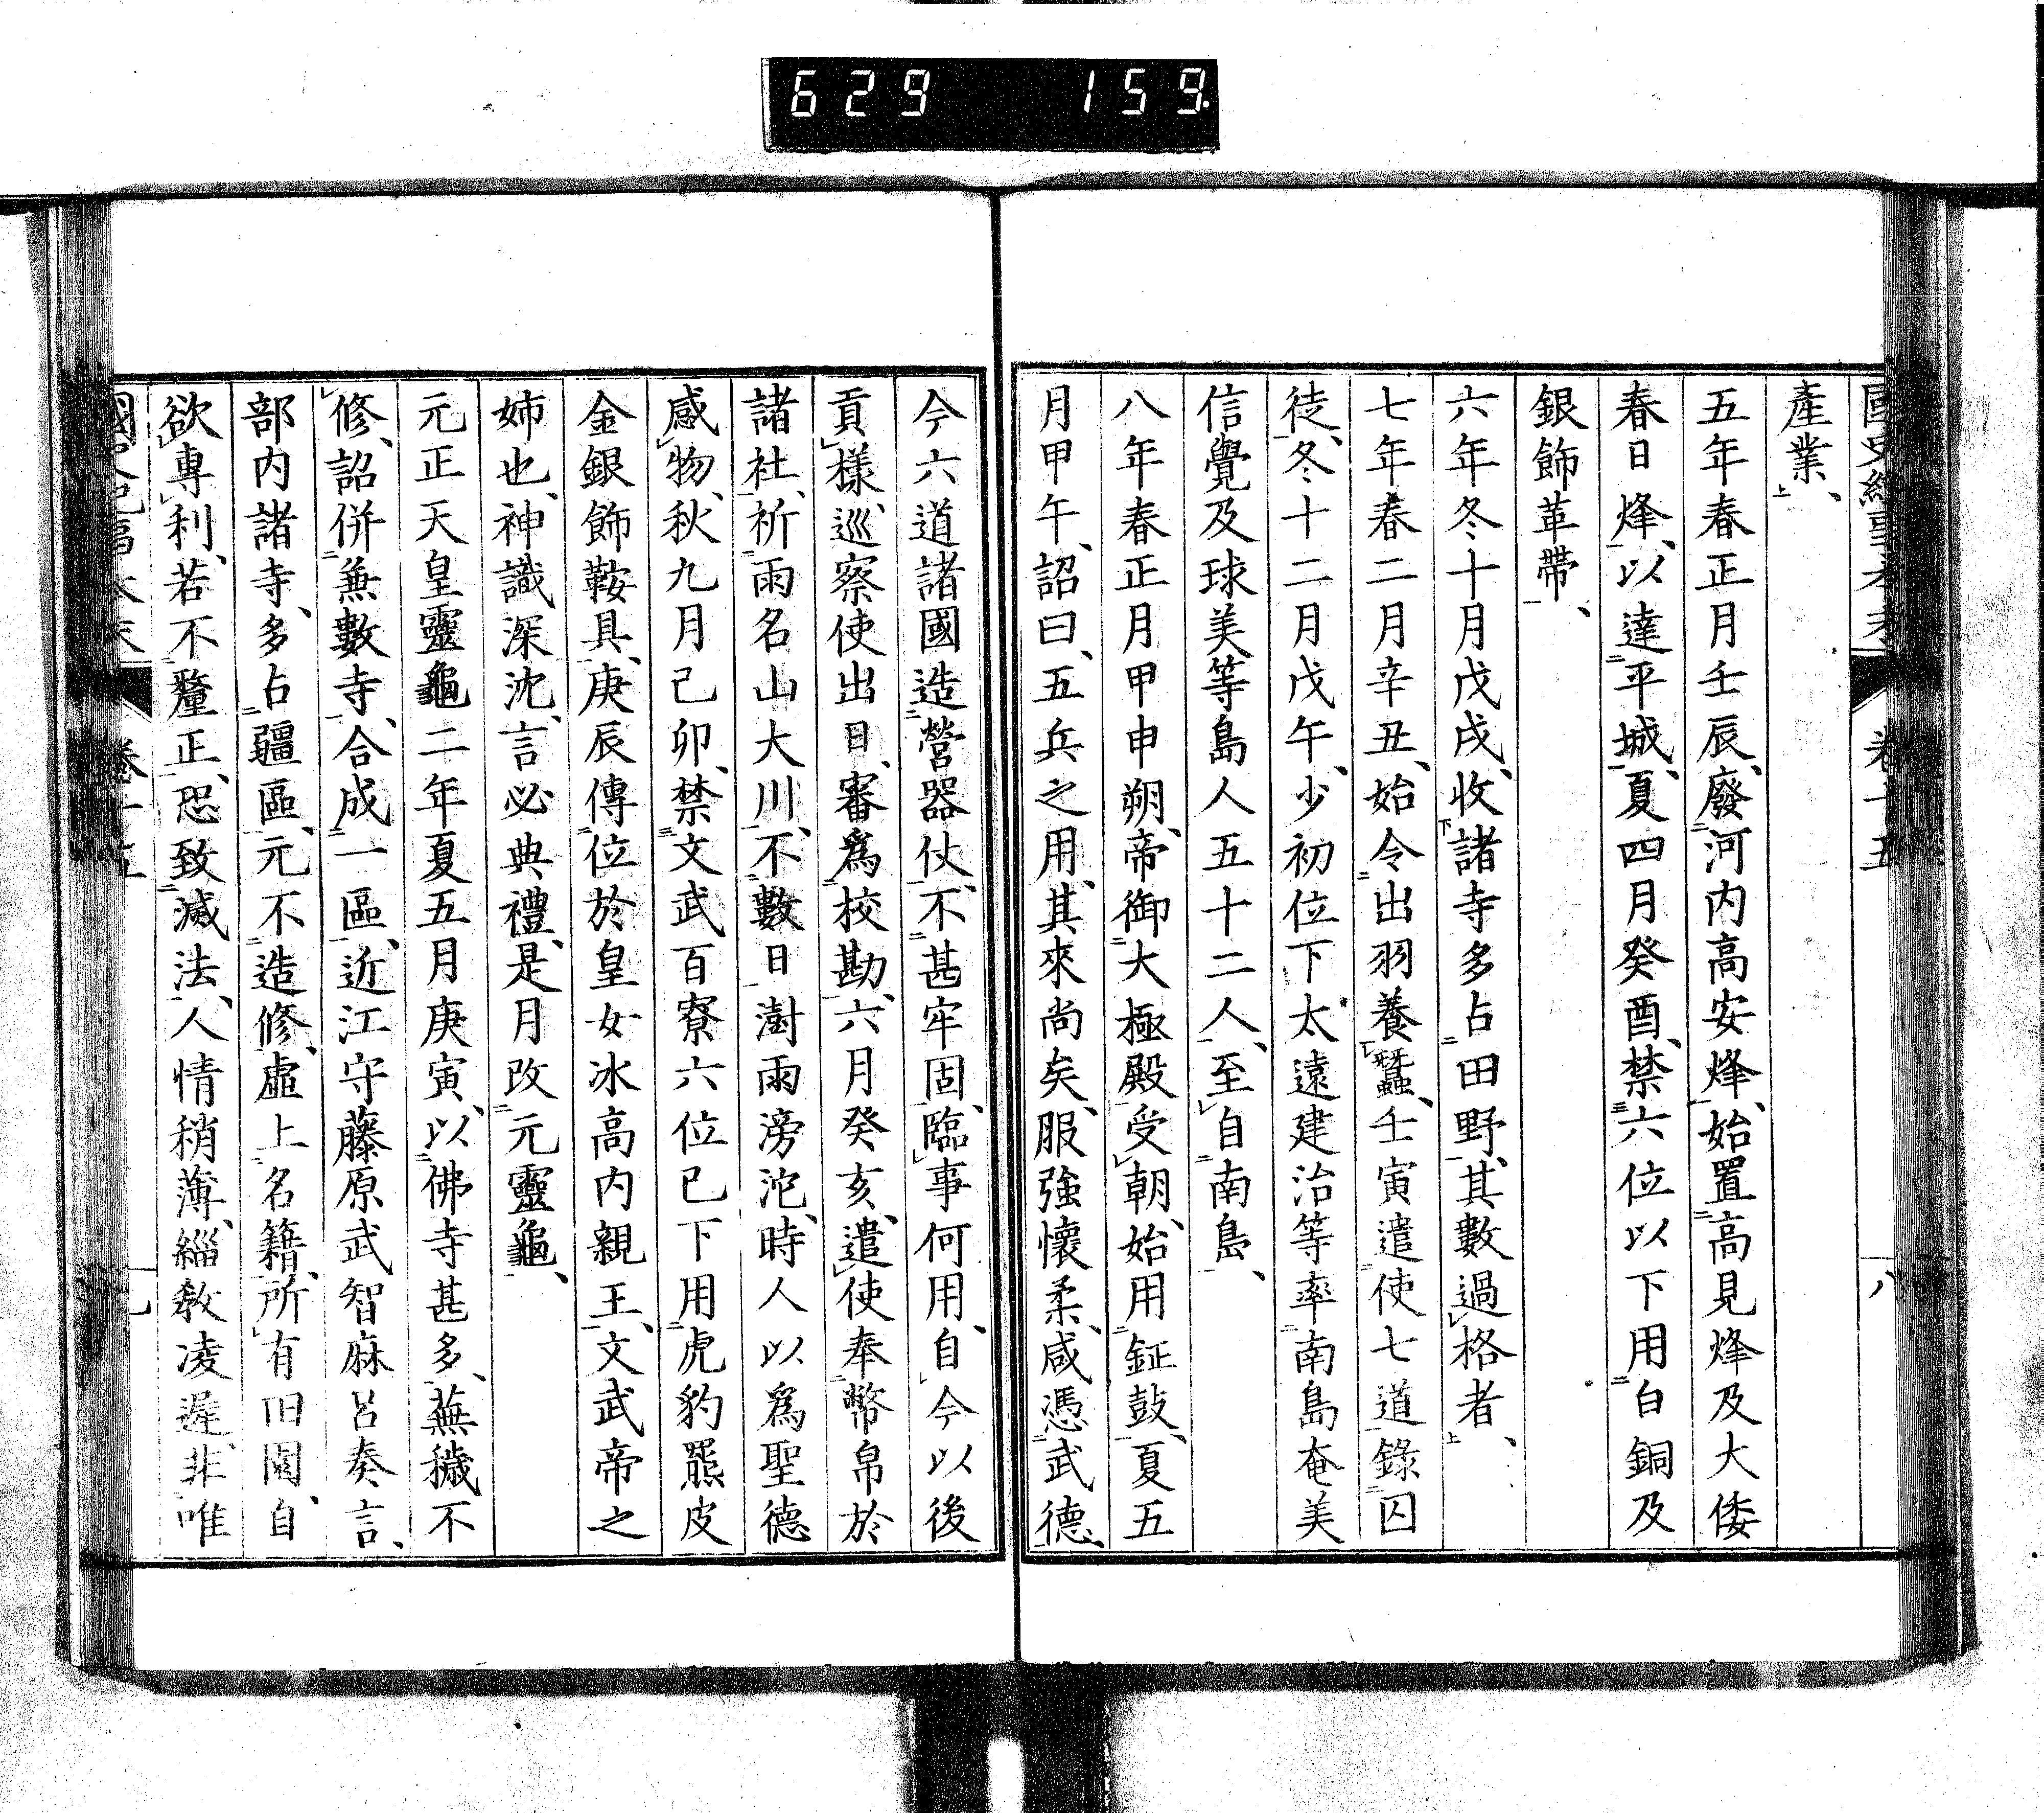 629 159
產業、
五年春正月壬辰、廢河内高安烽、始置高見烽及大倭
春日烽、以達平城、夏四月癸酉、禁六位以下用白銅及
銀飾革帶、
六年冬十月戊戌、收諸寺多占田野、其數過格者、
七年春二月辛丑、始令出羽養蠶、壬寅遣使七道錄囚
徒、冬十二月戊午、少初位下太遠建治等率南島奄美
信覺及球美等島人五十二人、至自南島、
八年春正月甲申朔、帝御大極殿受朝、始用鉦鼓、夏五
月甲午、詔曰、五兵之用、其來尚矣、服強懷柔、咸憑武德、
今六道諸國造營器仗、不甚牢固、臨事何用、自今以後
貢樣、巡察使出日、審爲校勘、六月癸亥、遣使奉幣帛於
諸社、祈雨名山大川、不數日澍雨滂沱、時人以爲聖德
感物、秋九月己卯、禁文武百寮六位已下用虎豹羆皮
金銀飾鞍具、庚辰傳位於皇女冰高内親王、文武帝之
姉也、神識深沈、言必典禮、是月改元靈龜、
元正天皇靈龜二年夏五月庚寅、以佛寺甚多、蕪穢不
修、詔併兼數寺、合成一區、近江守藤原武智麻呂奏言、
部内諸寺、多占疆區、元不造修、虛上名籍、所有田園、自
欲專利、若不釐正、恐致滅法、人情稍薄、緇教凌遲、非唯